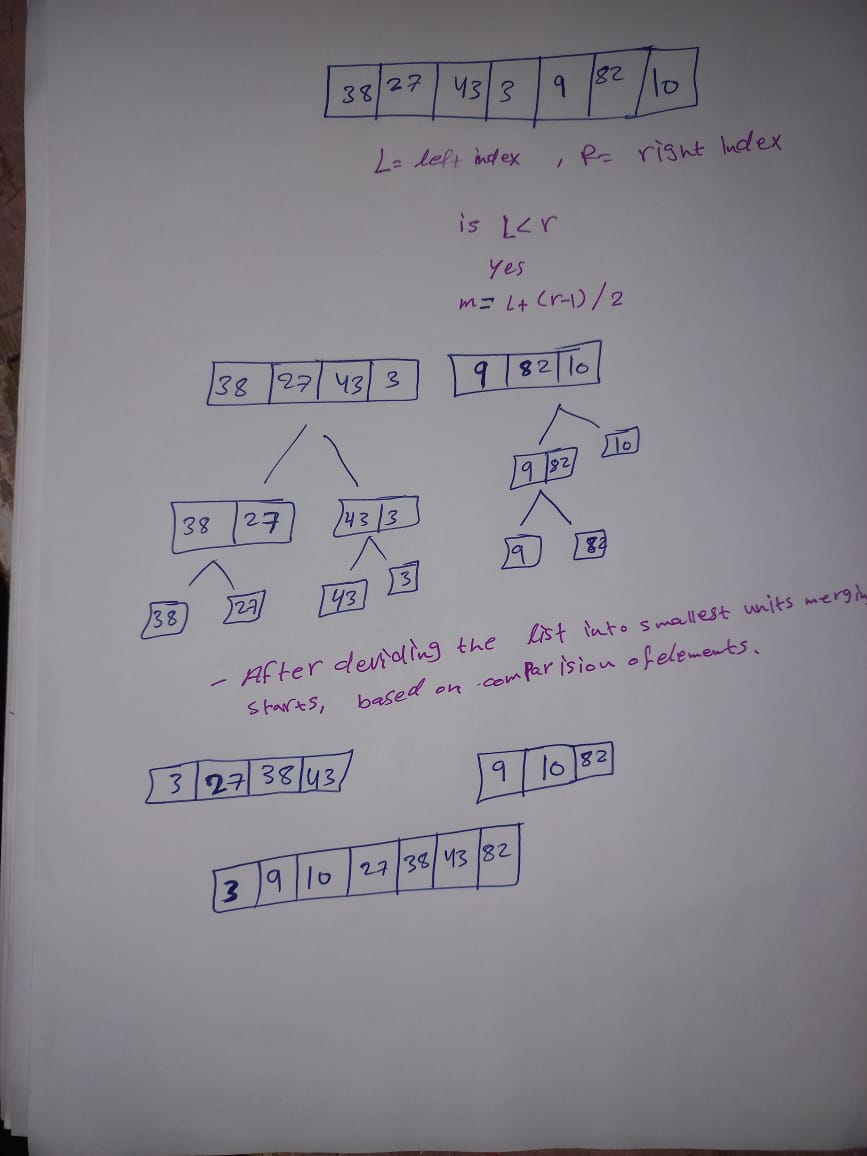 38 27 43 3 9 82 10
L= left index , R= right Index
is L<r
Yes
m= L+ (r-1)/2
38 27 43 3 9 82 10
9 82 10
38 27 43 3
9 82
38 27 43 3
- After deviding the list into smallest units mergin
starts, based on comparision of elements.
3 27 38 43 9 10 82
3 9 10 27 38 43 82